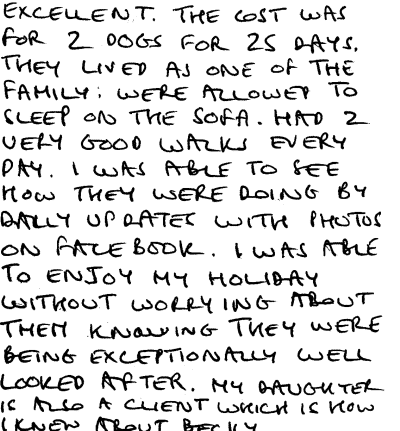 EXCELLENT. THE COST WAS
FOR 2 DOGS FOR 25 DAYS.
THEY LIVED AS ONE OF THE
FAMILY; WERE ALLOWED TO
SLEEP ON THE SOFA. HAD 2
VERY GOOD WALKS EVERY
DAY. I WAS ABLE TO SEE
HOW THEY WERE DOING BY
DAILY UPDATES WITH PHOTOS
ON FACEBOOK. I WAS ABLE
TO ENJOY MY HOLIDAY
WITHOUT WORRYING ABOUT
THEM KNOWING THEY WERE
BEING EXCEPTIONALLY WELL
LOOKED AFTER. MY DAUGHTER
IS ALSO A CLIENT WHICH IS HOW
I KNEW ABOUT BECKY